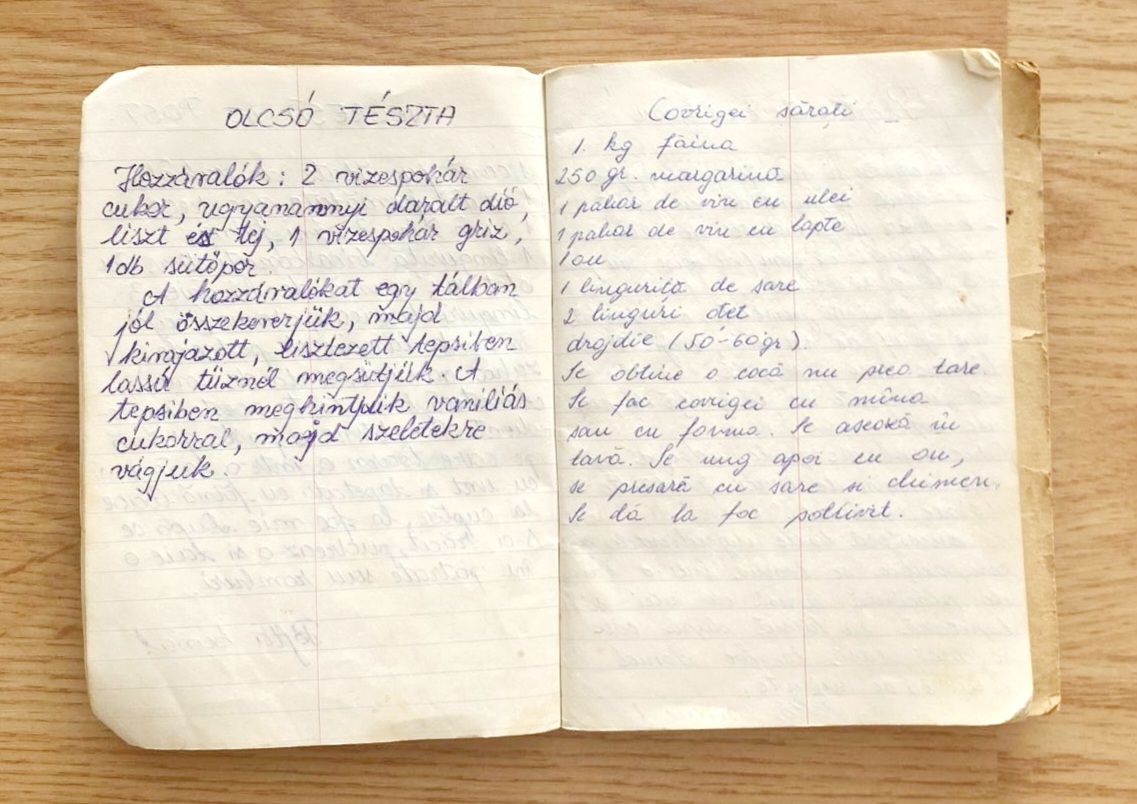 OLCSÓ TÉSZTA
Hozzávalók: 2 vizespohár
cukor, ugyanannyi darált dió,
liszt és tej, 1 vizespohár gríz,
1db sütőpor.
A hozzávalókat egy tálban
jól összekeverjük, majd
kivajazott, lisztezett tepsiben
lassú tűznél megsütjük. A
tepsiben meghintjük vaniliás
cukorral, majd szeletekre
vágjuk.
Covrigei sărați
1 kg făina
250 gr. margarină
1 pahar de vin cu ulei
1 pahar de vin cu lapte
1 ou
1 linguriță de sare
2 linguri oțet
drojdie (50-60gr).
Se obține o cocă nu prea tare.
Se fac covrigei cu mîna
sau cu forma. Se așează în
tavă. Se ung apoi cu ou,
se presară cu sare si chimen.
Se dă la foc potrivit.